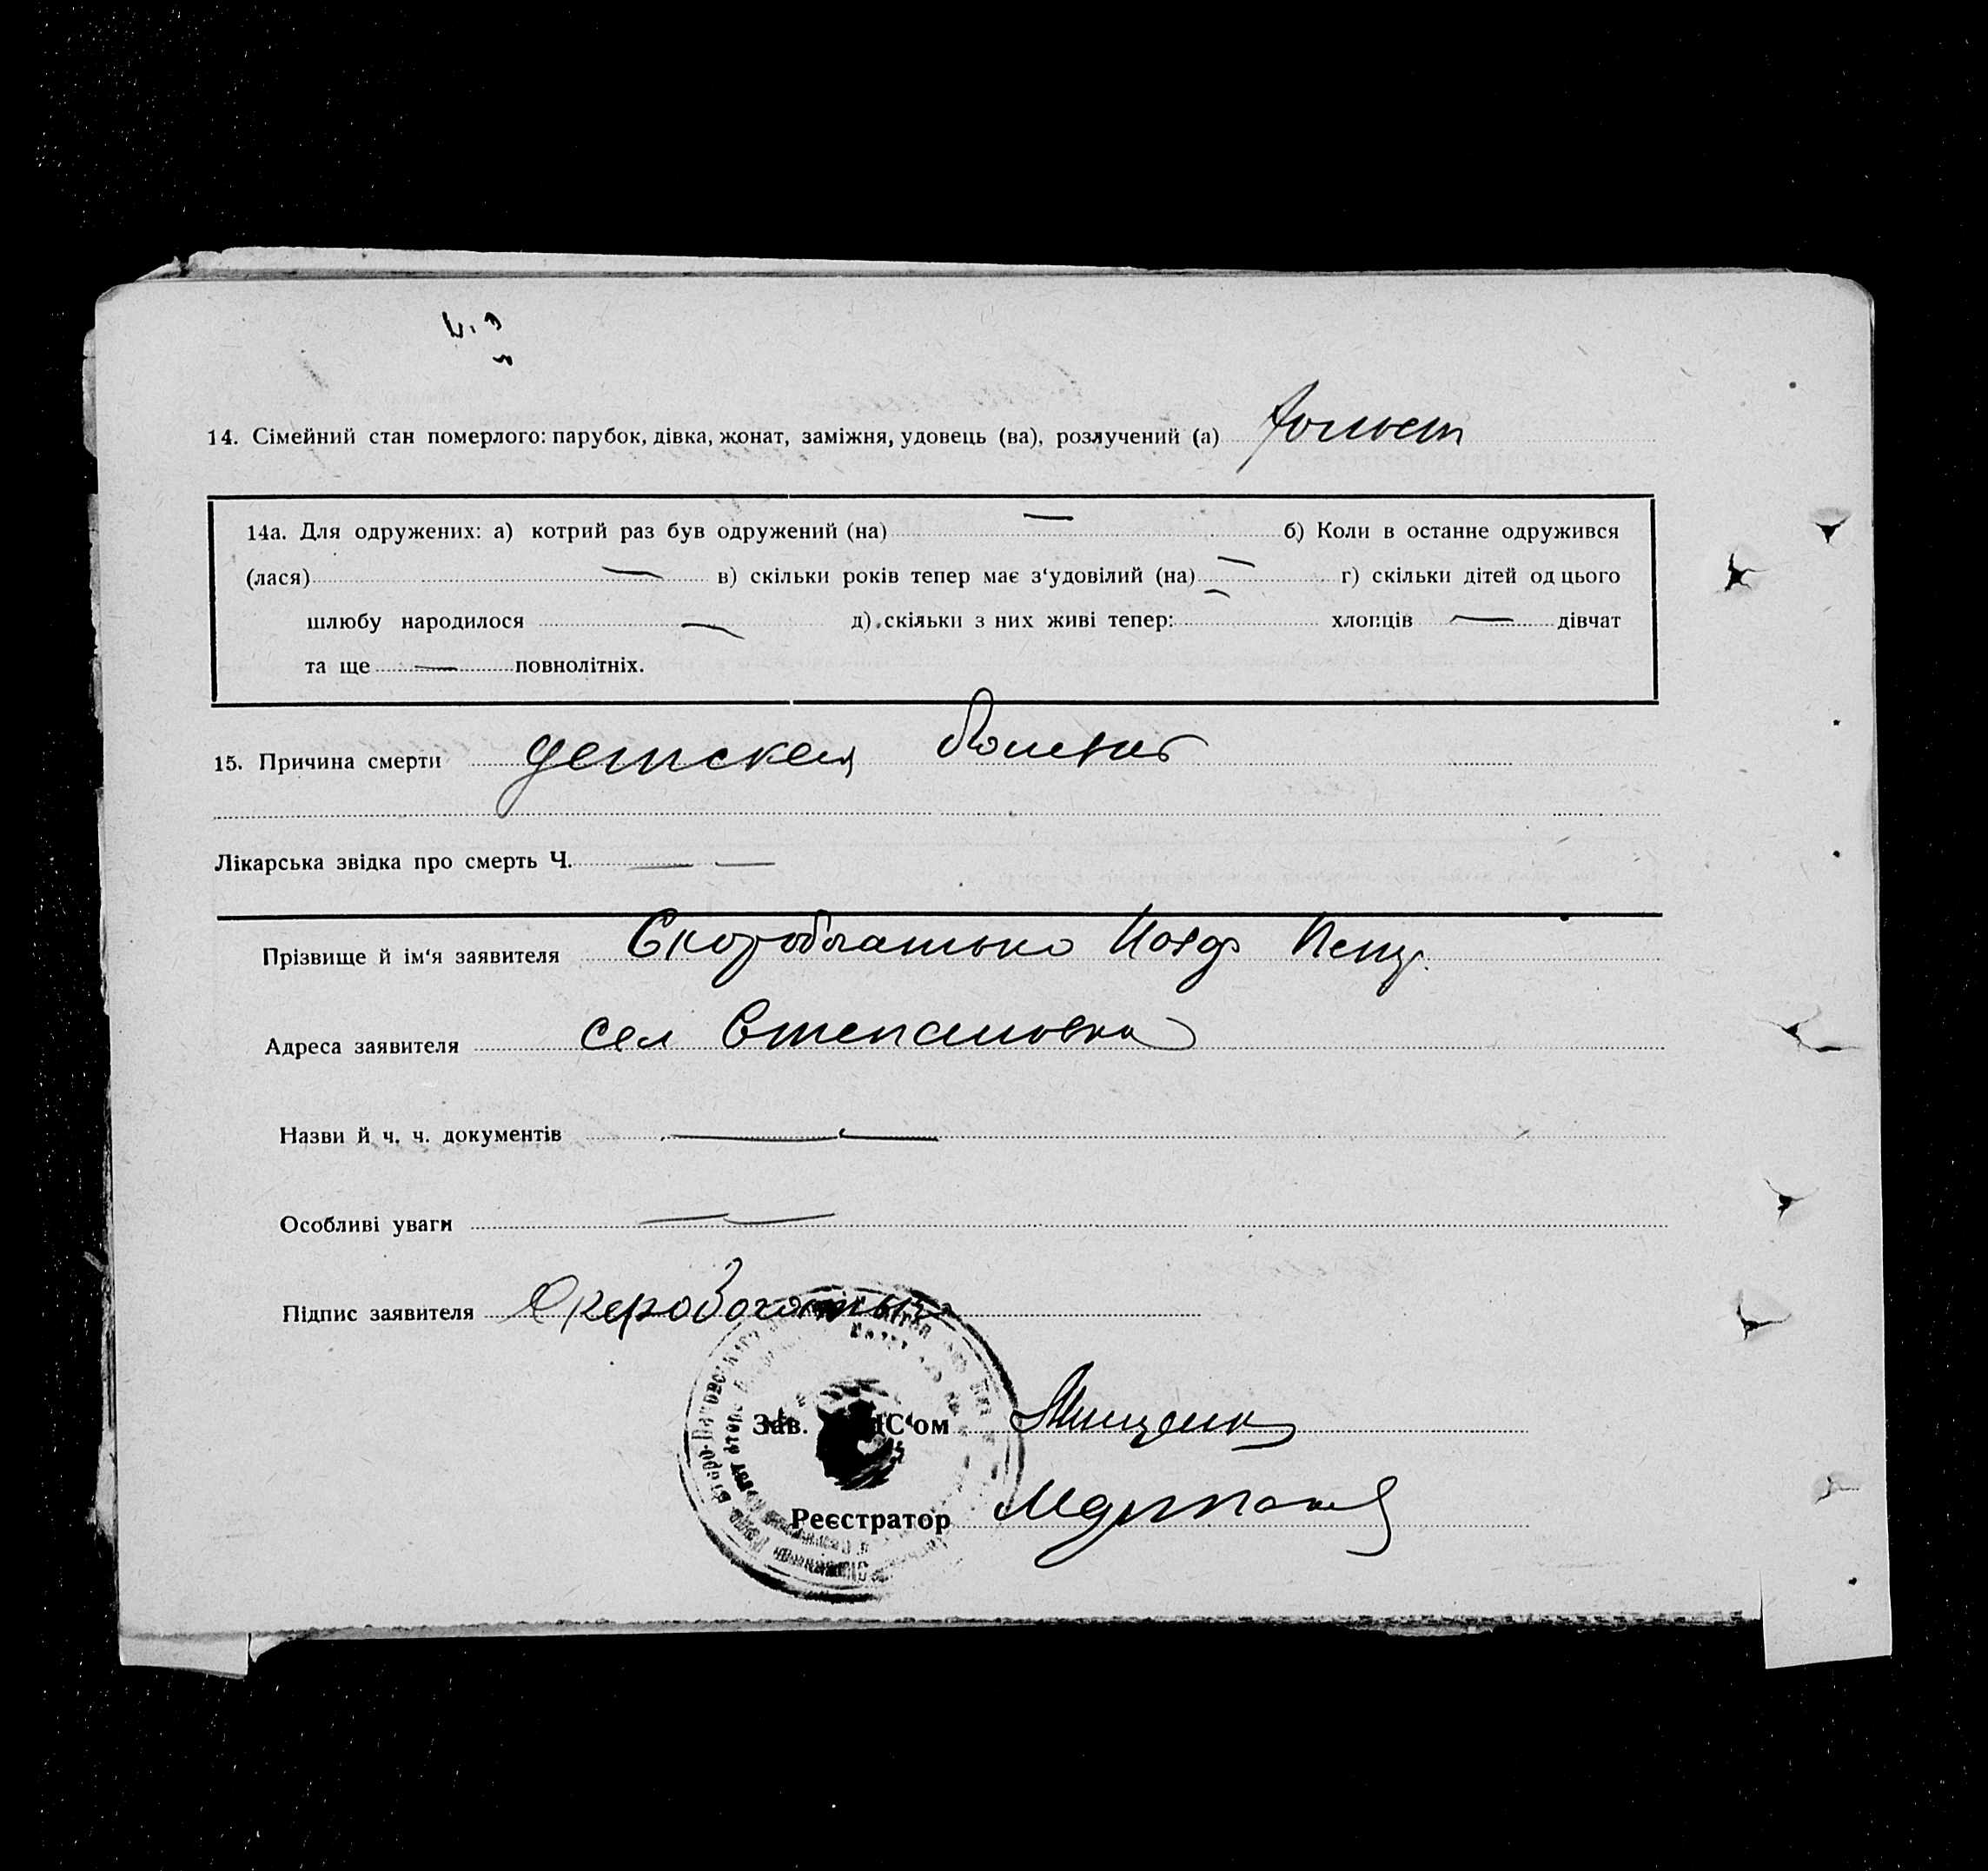 14. Сімейний стан померлого: парубок, дівка, жонат, заміжня, удовець (ва), розлучений (а) холост
14а. Для одружених: а) котрий раз був одружений (на) — б) Коли в останне одружився
(лася) — в) скільки років тепер має з‘удовілий (на) — г) скільки дітей од цього
шлюбу народилося — д) скільки з них живі тепер: — хлопців — дівчат
та ще — повнолітніх.
15. Причина смерти детская
Лікарська звідка про смерть Ч. — —
Прізвище й ім‘я заявителя Скоробогатько
Адреса заявителя сел Степановка
Назви й ч. ч. документів — —
Особливі уваги — —
Підпис заявителя
Зав. С‘ом
Реєстратор